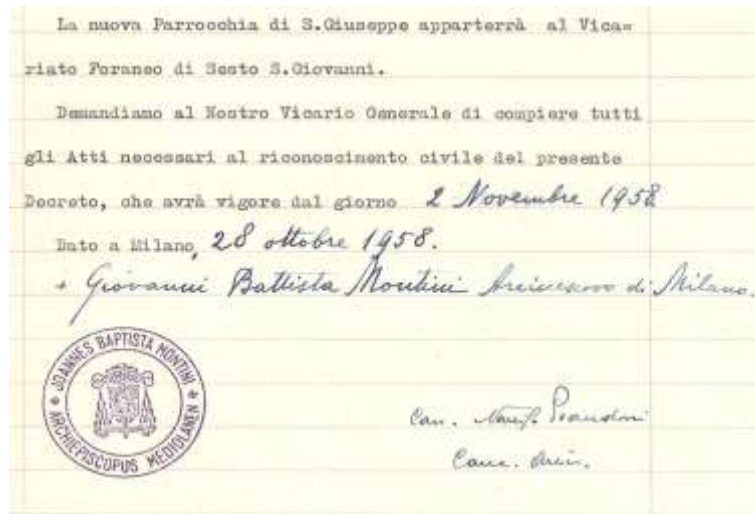 La nuova Parrocchia di S.Giuseppe apparterrà al Vica=
riato Foraneo di Sesto S.Giovanni.
Demandiamo al Nostro Vicario Generale di compiere tutti
gli Atti necessari al riconoscimento civile del presente
Decreto, che avrà vigore dal giorno 2 Novembre 1958
Dato a Milano, 28 ottobre 1958.
+ Giovanni Battista Montini Arcivescovo di Milano.
JOANNES BAPTISTA MONTINI
ARCHIEPISCOPUS MEDIOLANEN
Can.
Canc. Arciv.